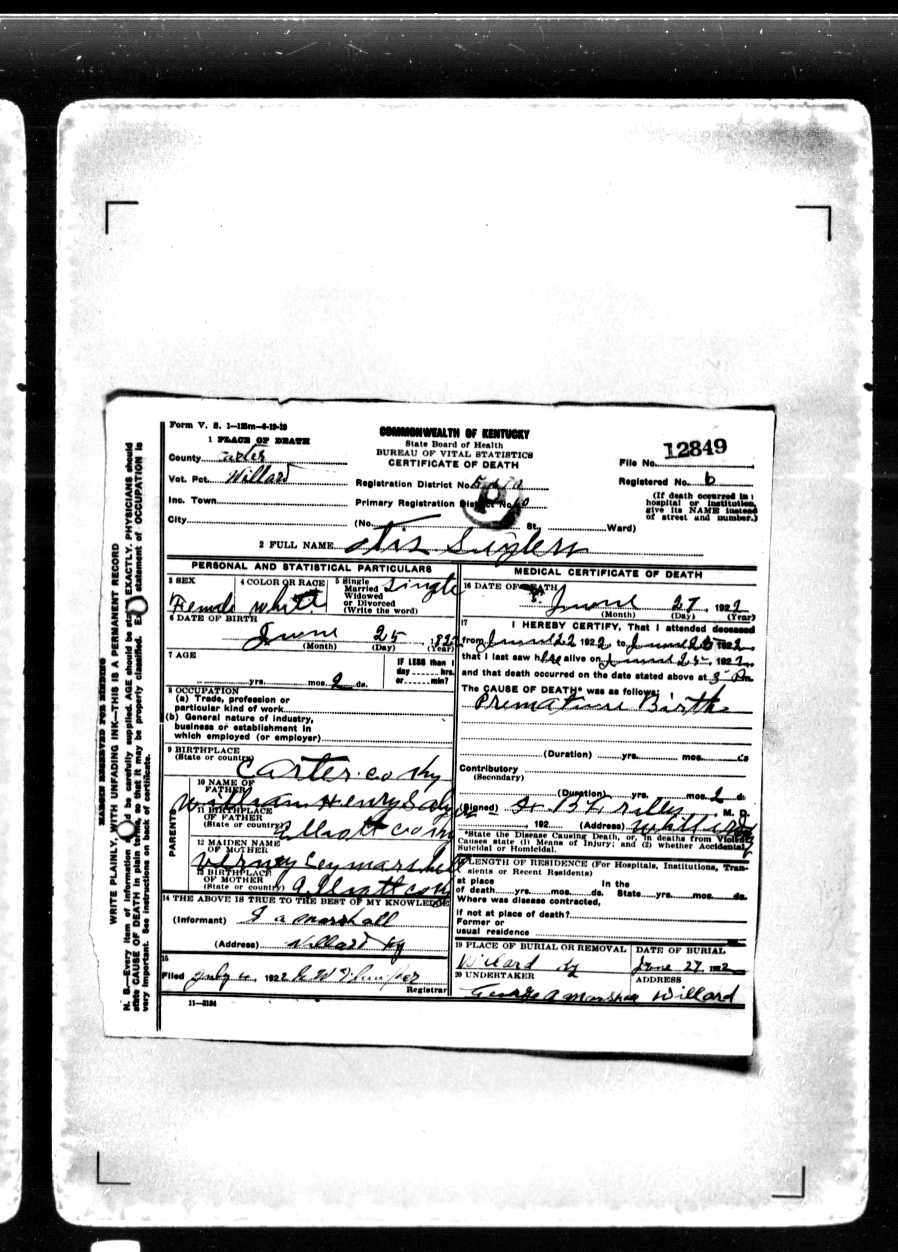 Form V. S. 1—125m—6-19-19
1 PLACE OF DEATH
County Carter
Vot. Pct. Willard
Inc. Town
City
COMMONWEALTH OF KENTUCKY
State Board of Health
BUREAU OF VITAL STATISTICS
CERTIFICATE OF DEATH
Registration District No.
Primary Registration District No.
(No. St., Ward)
File No. 12849
Registered No. 6
(If death occurred in a
hospital or institution,
give its NAME instead
of street and number.)
2 FULL NAME
PERSONAL AND STATISTICAL PARTICULARS
3 SEX
Female
4 COLOR OR RACE
White
5 Single
Married
Widowed
or Divorced
(Write the word)
Single
6 DATE OF BIRTH
June 25, 1922
(Month) (Day) (Year)
7 AGE
yrs. mos. 2 ds.
IF LESS than 1
day hrs.
or min?
8 OCCUPATION
(a) Trade, profession or
particular kind of work
(b) General nature of industry,
business or establishment in
which employed (or employer)
9 BIRTHPLACE
(State or country)
Carter. co Ky
PARENTS
10 NAME OF
FATHER
William Henry
11 BIRTHPLACE
OF FATHER
(State or country)
Elliott co Ky
12 MAIDEN NAME
OF MOTHER
Marshall
13 BIRTHPLACE
OF MOTHER
(State or country)
co Ky
14 THE ABOVE IS TRUE TO THE BEST OF MY KNOWLEDGE
(Informant) a Marshall
(Address) Willard Ky
15
Filed July 1922
Registrar
11—3184
MEDICAL CERTIFICATE OF DEATH
16 DATE OF DEATH
June 27, 1922
(Month) (Day) (Year)
17 I HEREBY CERTIFY, That I attended deceased
from June 22 1922, to June 25 1922
that I last saw her alive on June 25, 1922,
and that death occurred on the date stated above at 3 Pm
The CAUSE OF DEATH* was as follows:
Premature Birth
(Duration) yrs. mos. ds
Contributory
(Secondary)
(Duration) yrs. mos. 2 d.
(Signed) M. D.
192 (Address) Willard
*State the Disease Causing Death, or, in deaths from Violent
Causes state (1) Means of Injury; and (2) whether Accidental,
Suicidal or Homicidal.
18 LENGTH OF RESIDENCE (For Hospitals, Institutions, Tran-
sients or Recent Residents)
at place In the
of death yrs. mos. ds. State yrs. mos. ds.
Where was disease contracted,
if not at place of death?
Former or
usual residence
19 PLACE OF BURIAL OR REMOVAL
Willard Ky
DATE OF BURIAL
June 27, 1922
20 UNDERTAKER
George A Marshall
ADDRESS
Willard
MARGIN RESERVED FOR BINDING
WRITE PLAINLY, WITH UNFADING INK—THIS IS A PERMANENT RECORD
N. B.—Every item of information should be carefully supplied. AGE should be stated EXACTLY. PHYSICIANS should
state CAUSE OF DEATH in plain terms, so that it may be properly classified. Exact statement of OCCUPATION is
very important. See instructions on back of certificate.